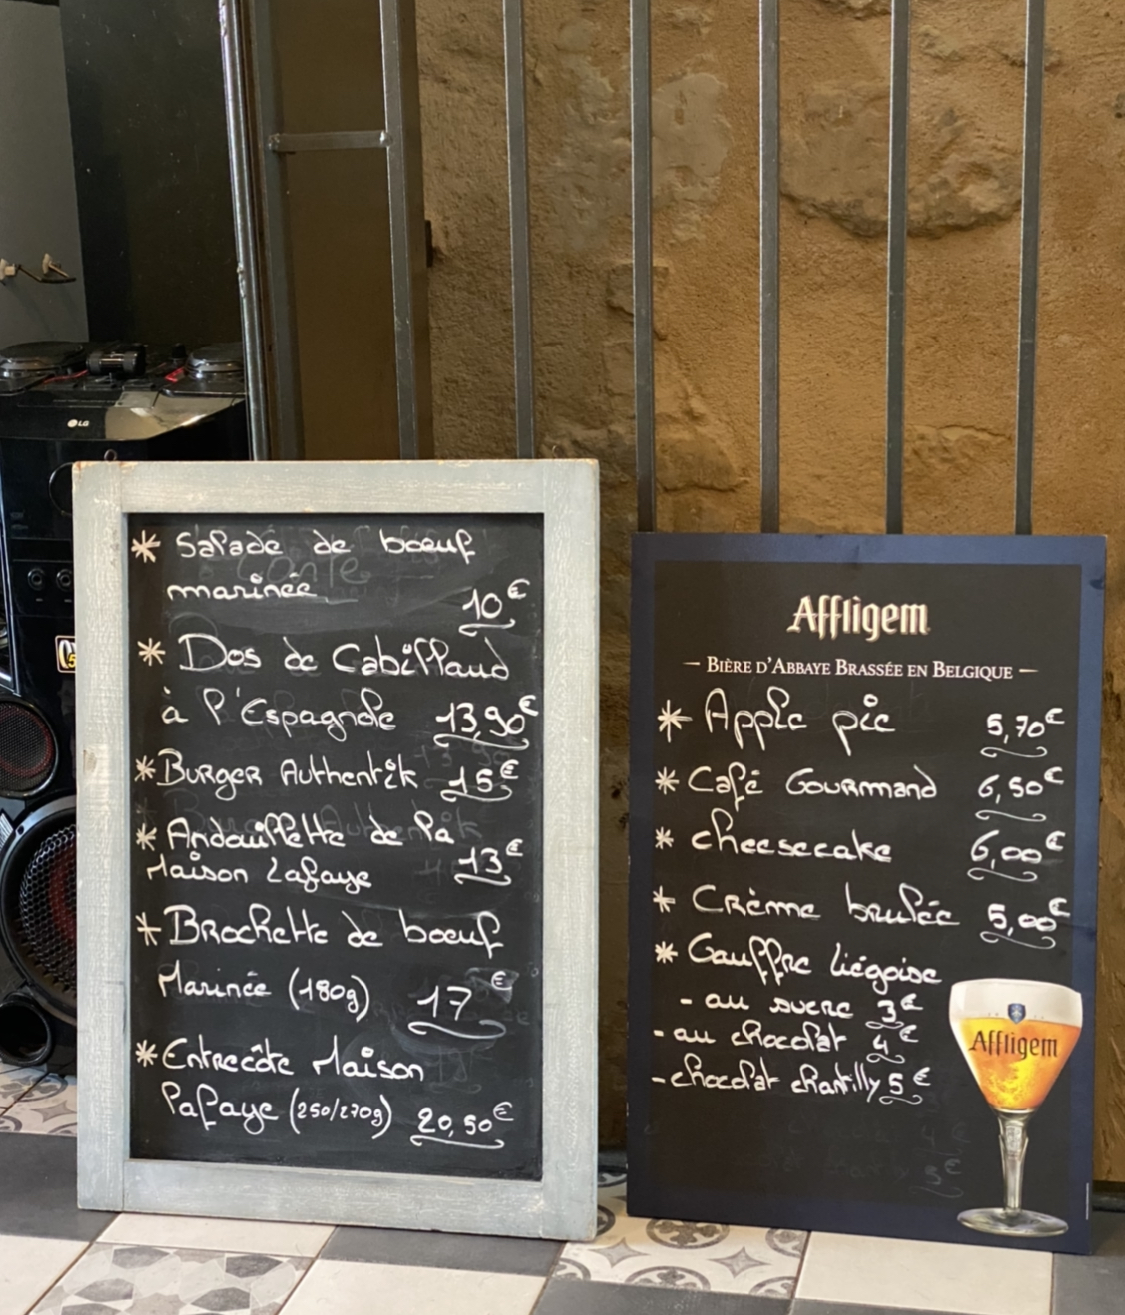 LG
* Salade de boeuf
marinée 10€
* Dos de Cabillaud
à l'Espagnole 13,90€
* Burger Authentik 15€
* Andouillette de la
Maison Lafaye 13€
* Brochette de boeuf
Marinée (180g) 17€
* Entrecôte Maison
Lafaye (250/270g) 20,50€
Affligem
— BIÈRE D'ABBAYE BRASSÉE EN BELGIQUE —
* Apple pie 5,70€
* Café Gourmand 6,50€
* cheesecake 6,00€
* Crème brulée 5,00€
* Gauffre liégoise
- au sucre 3€
- au chocolat 4€
- chocolat chantilly 5€
Affligem